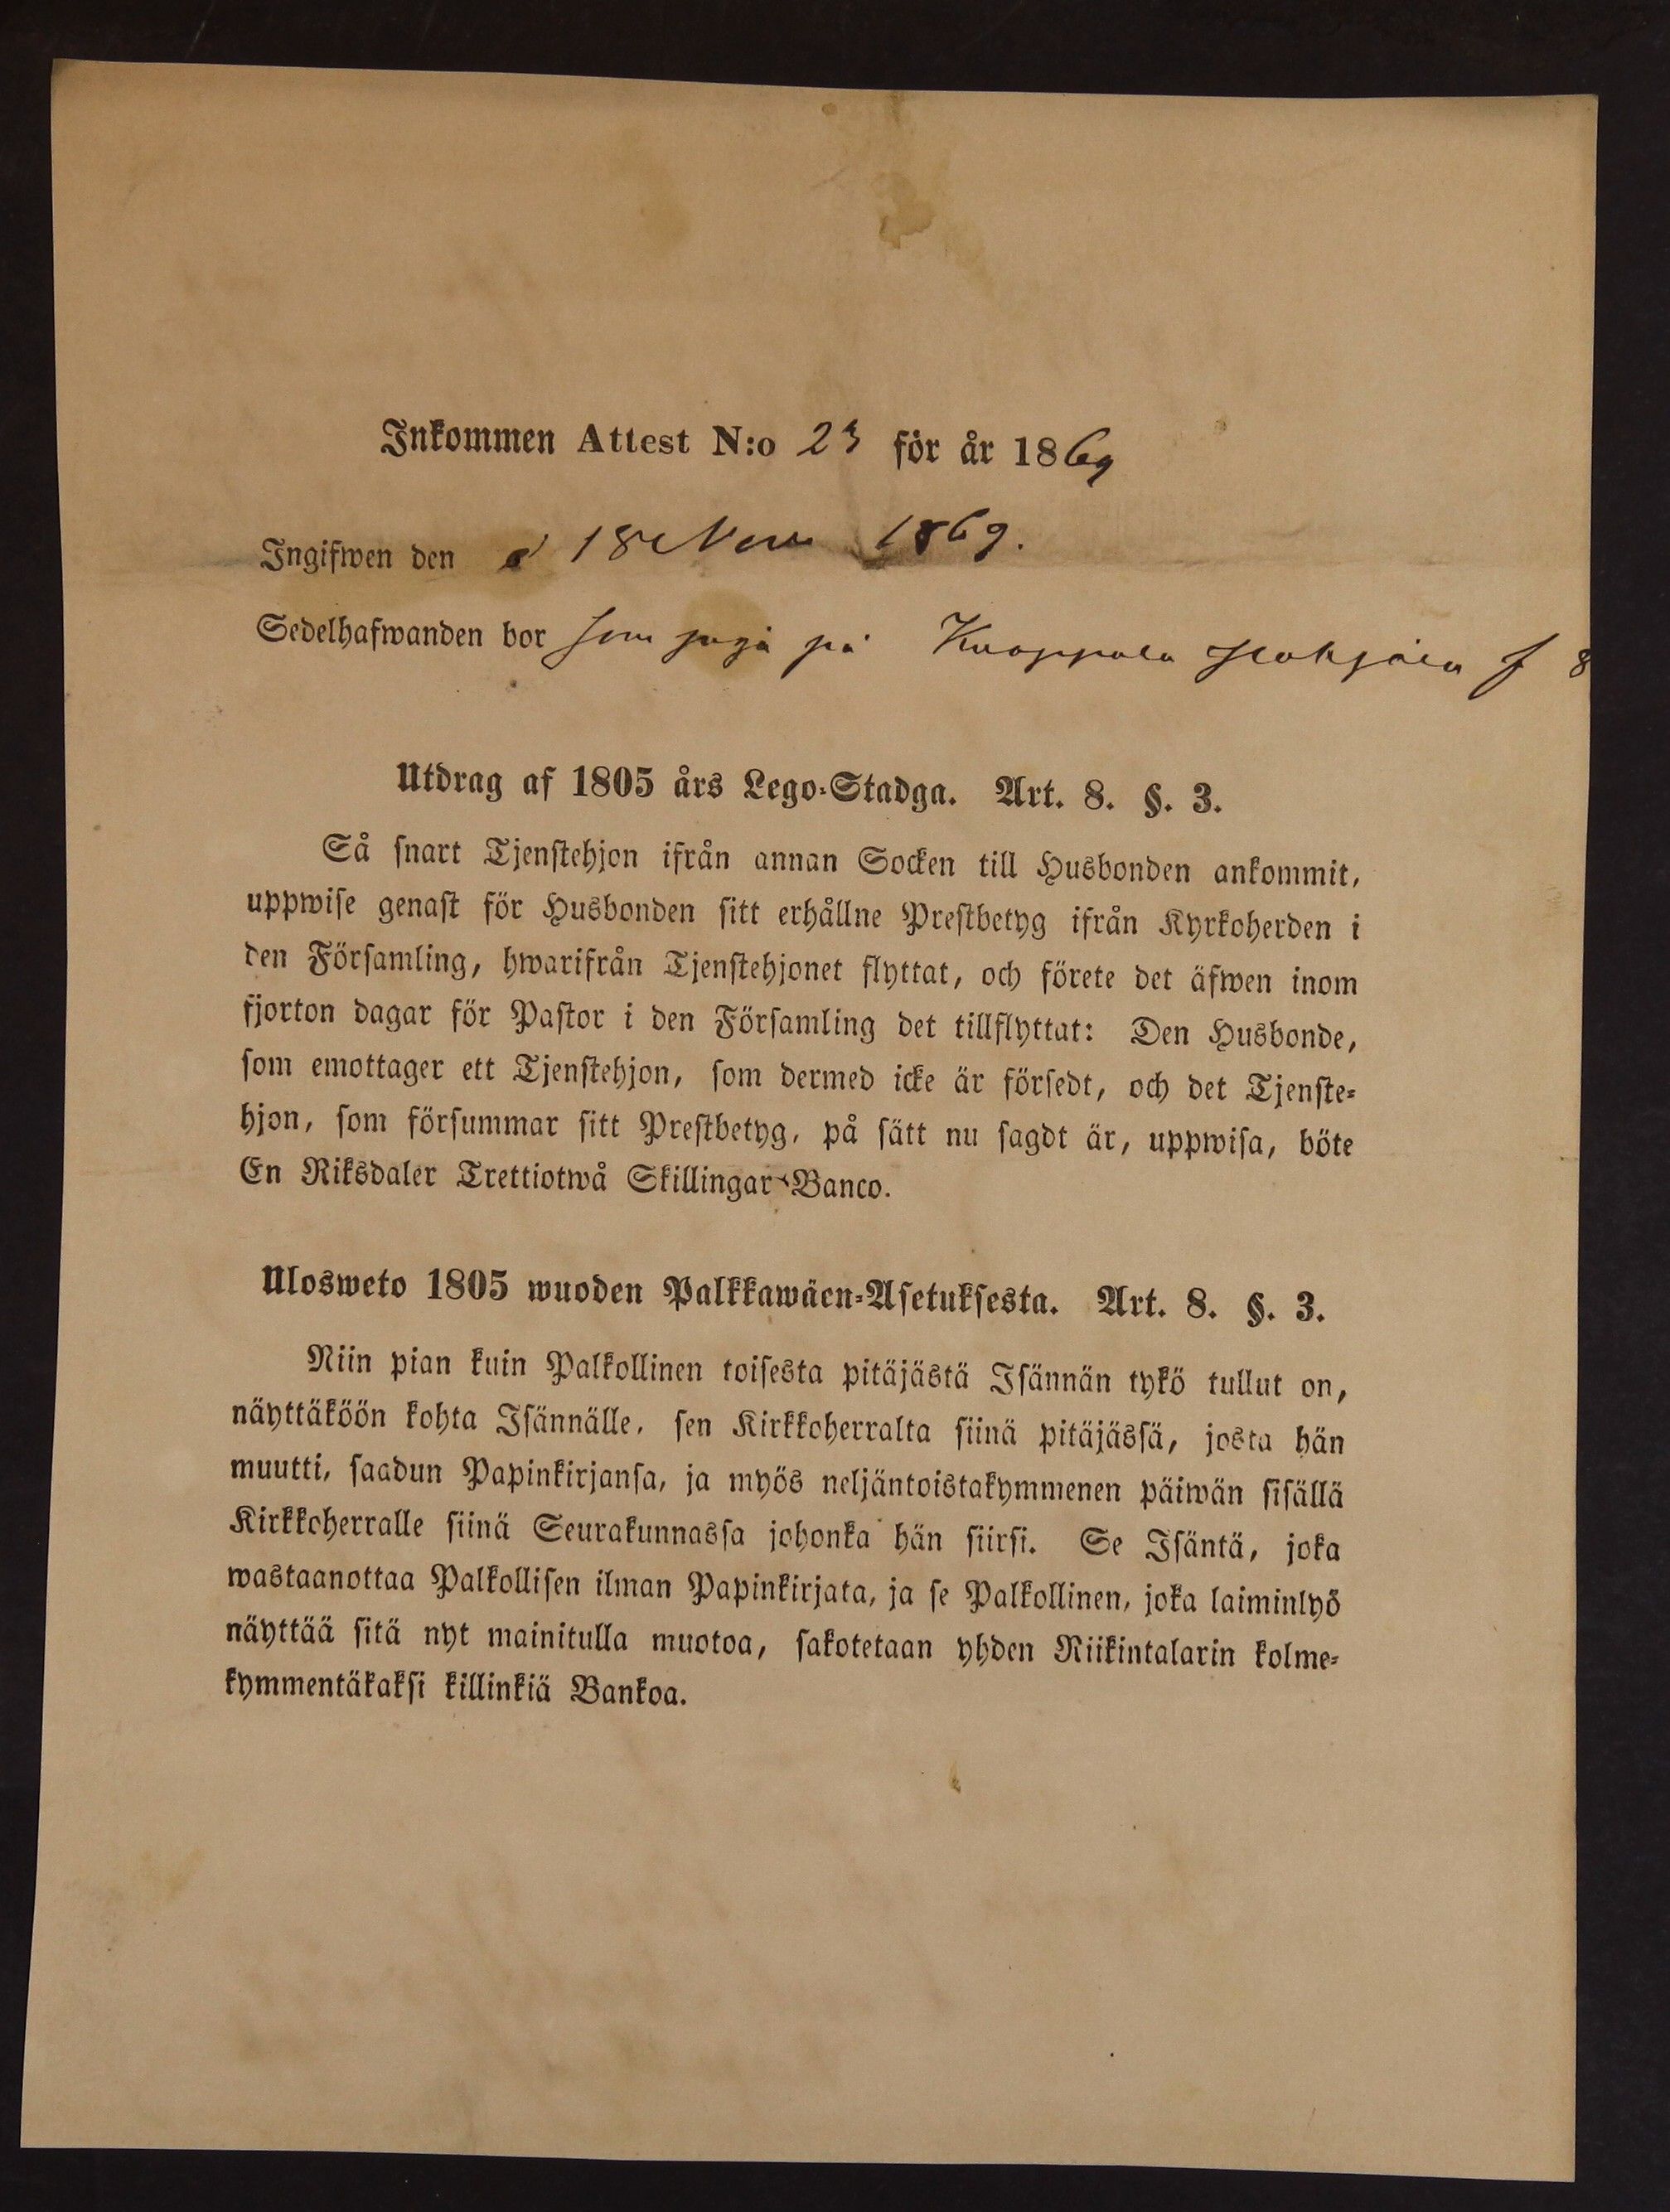 Inkommen Attest N:o 23 för år 1869
Ingifwen den d 18 Nov 1869.
Sedelhafwanden bor som piga på Knappala
Utdrag af 1805 års Lego-Stadga. Art. 8. §. 3.
Så snart Tjenstehjon ifrån annan Socken till Husbonden ankommit,
uppwise genast för Husbonden sitt erhållne Prestbetyg ifrån Kyrkoherden i
den Församling, hwarifrån Tjenstehjonet flyttat, och förete det äfwen inom
fjorton dagar för Pastor i den Församling det tillflyttat: Den Husbonde,
som emottager ett Tjenstehjon, som dermed icke är försedt, och det Tjenste-
hjon, som försummar sitt Prestbetyg, på sätt nu sagdt är, uppwisa, böte
En Riksdaler Trettiotwå Skillingar Banco.
Ulosweto 1805 wuoden Palkkawäen-Asetuksesta. Art. 8. §. 3.
Niin pian kuin Palkollinen toisesta pitäjästä Isännän tykö tullut on,
näyttäköön kohta Isännälle, sen Kirkkoherralta siinä pitäjässä, josta hän
muutti, saadun Papinkirjansa, ja myös neljäntoistakymmenen päiwän sisällä
Kirkkoherralle siinä Seurakunnassa johonka hän siirsi. Se Isäntä, joka
wastaanottaa Palkollisen ilman Papinkirjata, ja se Palkollinen, joka laiminlyö
näyttää sitä nyt mainitulla muotoa, sakotetaan yhden Riikintalarin kolme-
kymmentäkaksi killinkiä Bankoa.